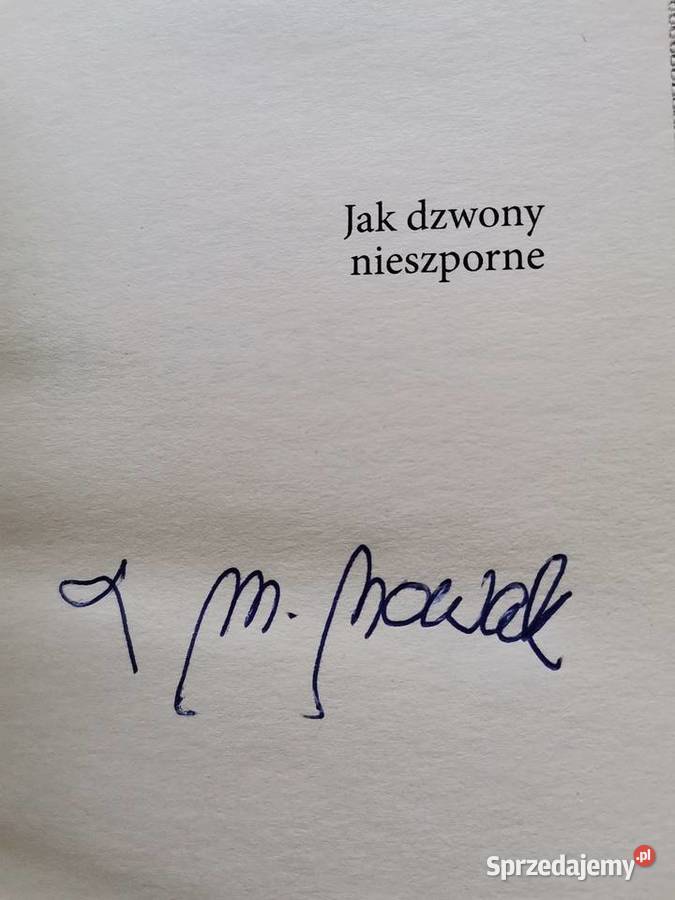 Jak dzwony
nieszporne
M. Nowak
Sprzedajemy.pl